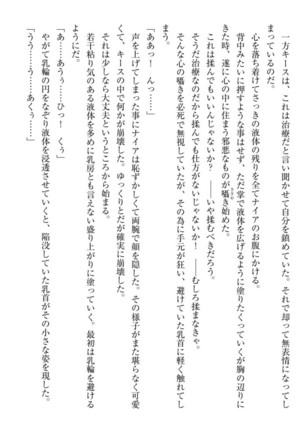 一方キースは、これは治療だと言い聞かせて自分を鎮めていた。それで却って無表情になってし
まっているのだ。
心を落ち着けてさっきの液体の残りを全てナイアのお腹にかける。
背中みたいに押すような事はせず、ただ掌で液体を広げるように塗りたくっていくが胸の辺りに
きた時、遂に心の中に住まう邪悪なものが囁き始めた。
これは揉んでもいいんじゃないか？――いや揉むべきだろう。
そうだ治療なのだから揉んでも仕方がないじゃないか！――むしろ揉まなきゃ。
そんな心の囁きを必死で無視していたが、その為に手元が狂い、避けていた乳首に軽く触れてし
まう。
「ああっ！　んっ……」
声を上げてしまった事にナイアは恥ずかしくて両腕で顔を隠した。その様子がまた堪らなく可愛
くて、キースの中で何かが崩壊した。ゆっくりとだが確実に崩壊した。
それは少しなら大丈夫というところから始まる。
若干粘り気のある液体を多めに乳房とも言えない盛り上がりに塗っていく。最初は乳輪を避ける
ようにだ。
「あ……あうぅ……ひっ！　くぅ」
やがて乳輪の円をなぞり液体を浸透させていくと、陥没していた乳首がその小さな姿を現した。
「うう……う……あくぅ……」